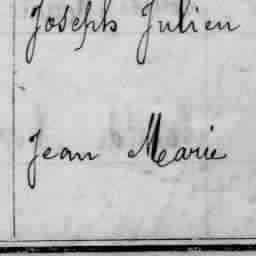 Joseph Julien
Jean Marie